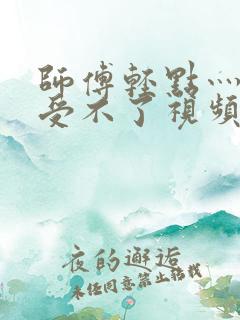 師傅輕點灬
受不了視頻
夜的邂逅
未经同意禁止转载